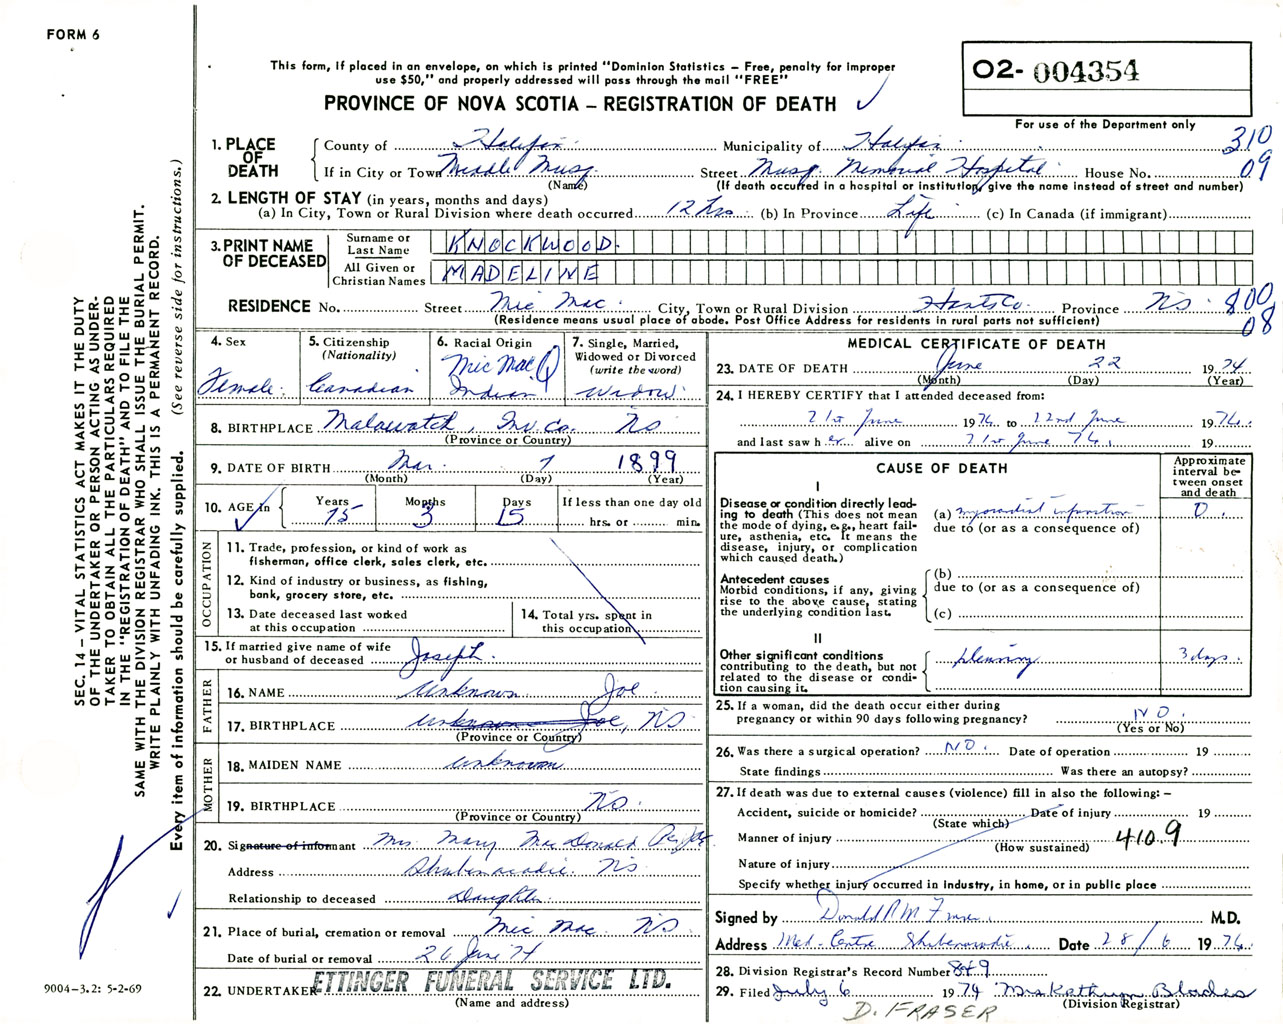 FORM 6
This form, if placed in an envelope, on which is printed "Dominion Statistics – Free, penalty for improper
use $50," and properly addressed will pass through the mail "FREE"
PROVINCE OF NOVA SCOTIA – REGISTRATION OF DEATH
O2- 004354
For use of the Department only
310
09
1. PLACE OF DEATH County of Halifax Municipality of Halifax
If in City or Town Middle Musq. Street Musq. Memorial Hospital House No.
(Name) (If death occurred in a hospital or institution, give the name instead of street and number)
2. LENGTH OF STAY (in years, months and days)
(a) In City, Town or Rural Division where death occurred 12 hrs (b) In Province Life (c) In Canada (if immigrant)
3. PRINT NAME OF DECEASED Surname or Last Name KNOCKWOOD.
All Given or Christian Names MADELINE
RESIDENCE No. Street Mic Mac. City, Town or Rural Division Hants Co. Province NS. 800
(Residence means usual place of abode. Post Office Address for residents in rural parts not sufficient) 08
4. Sex Female.
5. Citizenship (Nationality) Canadian
6. Racial Origin Mic Mac Indian
7. Single, Married, Widowed or Divorced (write the word) widow.
8. BIRTHPLACE Malawatch, Inv. Co. NS
(Province or Country)
9. DATE OF BIRTH Mar. 7 1899
(Month) (Day) (Year)
10. AGE in Years 75 Months 3 Days 15 If less than one day old
hrs. or min.
OCCUPATION
11. Trade, profession, or kind of work as
fisherman, office clerk, sales clerk, etc.
12. Kind of industry or business, as fishing,
bank, grocery store, etc.
13. Date deceased last worked
at this occupation
14. Total yrs. spent in
this occupation
15. If married give name of wife
or husband of deceased Joseph.
FATHER
16. NAME Unknown Joe
17. BIRTHPLACE Unknown Joe, NS
(Province or Country)
MOTHER
18. MAIDEN NAME unknown
19. BIRTHPLACE NS.
(Province or Country)
20. Signature of informant Mrs. Mary MacDonald
Address Shubenacadie. NS
Relationship to deceased Daughter
21. Place of burial, cremation or removal Mic Mac. NS
Date of burial or removal 26 June 74
22. UNDERTAKER ETTINGER FUNERAL SERVICE LTD.
(Name and address)
MEDICAL CERTIFICATE OF DEATH
23. DATE OF DEATH June 22 1974
(Month) (Day) (Year)
24. I HEREBY CERTIFY that I attended deceased from:
21st June 1974 to 22nd June 1974.
and last saw her alive on 21st June 74. 19
CAUSE OF DEATH
Approximate interval between onset and death
I
Disease or condition directly leading to death (This does not mean the mode of dying, e.g., heart failure, asthenia, etc. It means the disease, injury, or complication which caused death.)
(a) myocardial infarction 0.
due to (or as a consequence of)
Antecedent causes
Morbid conditions, if any, giving rise to the above cause, stating the underlying condition last.
(b)
due to (or as a consequence of)
(c)
II
Other significant conditions
contributing to the death, but not related to the disease or condition causing it.
pleurisy 3 days.
25. If a woman, did the death occur either during
pregnancy or within 90 days following pregnancy? NO.
(Yes or No)
26. Was there a surgical operation? NO. Date of operation 19
State findings Was there an autopsy?
27. If death was due to external causes (violence) fill in also the following: –
Accident, suicide or homicide? Date of injury 19
(State which)
Manner of injury 410.9
(How sustained)
Nature of injury
Specify whether injury occurred in Industry, in home, or in public place
Signed by Donald R M Fraser. M.D.
Address Med-Centre Shubenacadie. Date 28/6 1974.
28. Division Registrar's Record Number 849
29. Filed July 6 1974 Mrs Kathryn Blades
(Division Registrar)
D. FRASER
SEC. 14 – VITAL STATISTICS ACT MAKES IT THE DUTY
OF THE UNDERTAKER OR PERSON ACTING AS UNDER-
TAKER TO OBTAIN ALL THE PARTICULARS REQUIRED
IN THE "REGISTRATION OF DEATH" AND TO FILE THE
SAME WITH THE DIVISION REGISTRAR WHO SHALL ISSUE THE BURIAL PERMIT.
WRITE PLAINLY WITH UNFADING INK. THIS IS A PERMANENT RECORD.
Every item of information should be carefully supplied. (See reverse side for instructions.)
9004-3.2: 5-2-69